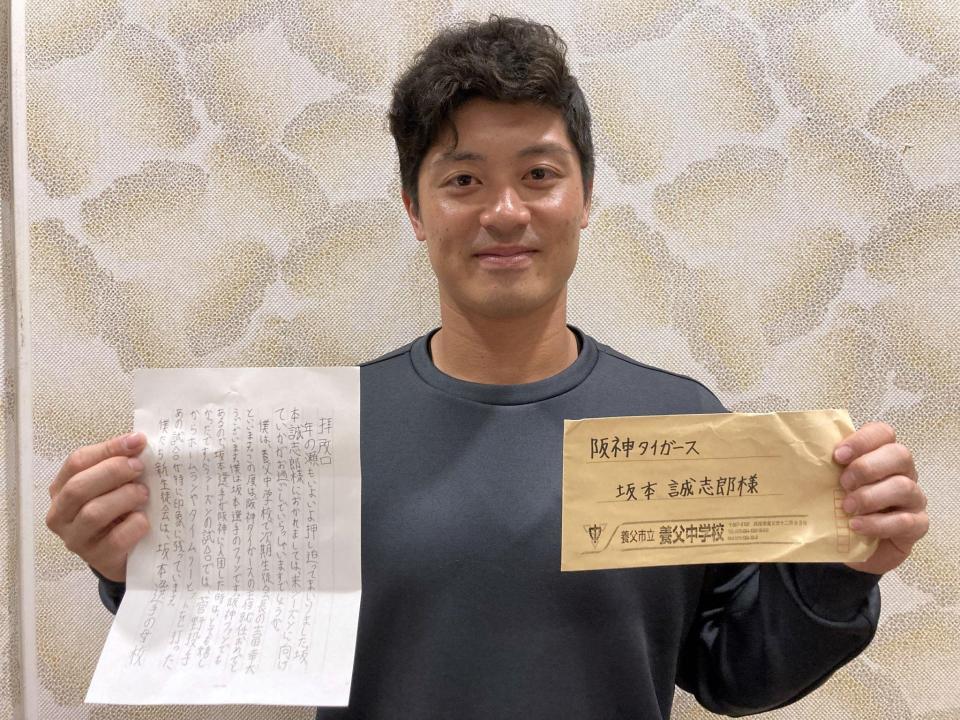 拝啓
年の瀬もいよいよ押し迫ってまいりました。坂
本誠志郎様におかれましては、来シーズンに向け
ていかがお過ごしでいらっしゃいますでしょうか。
僕は、養父中学校で次期生徒会長の
といいます。この度は阪神タイガースの主将就任おめでと
うございます。僕は坂本選手のファンです。阪神ファンでも
あるので、坂本選手が阪神に入団した時は、とても嬉し
かったです。タイガースの試合では、菅野投手
からホームランやタイムリーヒットを打った
あの試合が特に印象に残っています。
僕たち新生徒会は、坂本選手の母校
阪神タイガース
坂本 誠志郎様
養父市立 養父中学校